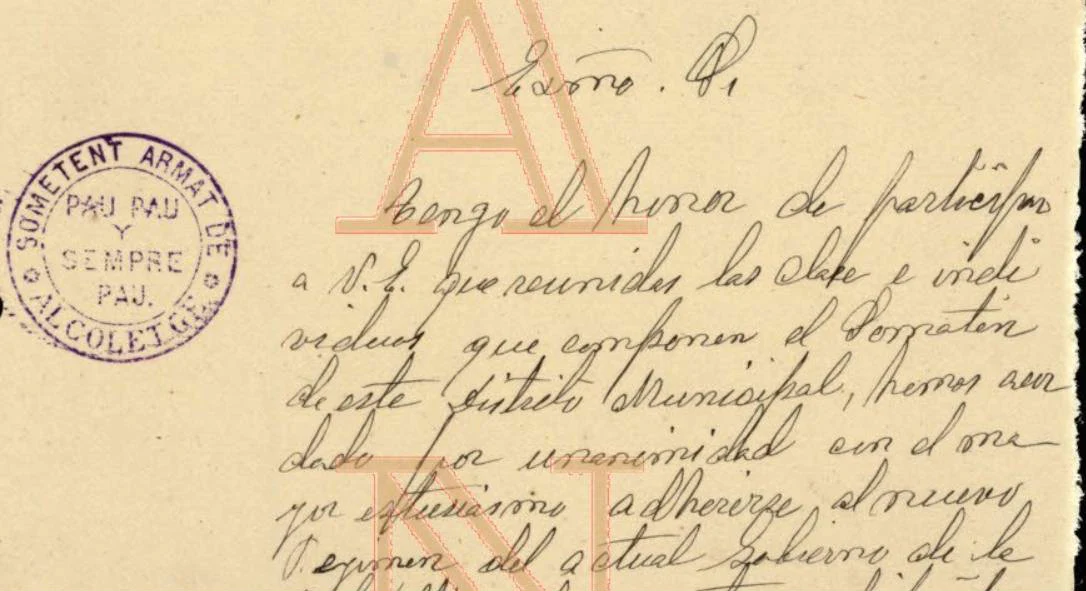 Exmo. Sr
SOMETENT ARMAT DE
ALCOLETGE
PAU PAU
Y
SEMPRE
PAU.
Tengo el honor de participar
a V.E. que reunidas las clase e indi
viduos que componen el Somatén
de este Distrito Municipal, hemos acor
dado por unanimidad con el ma
yor estusiasmo adherirse al nuevo
Regimen del actual Gobierno de la